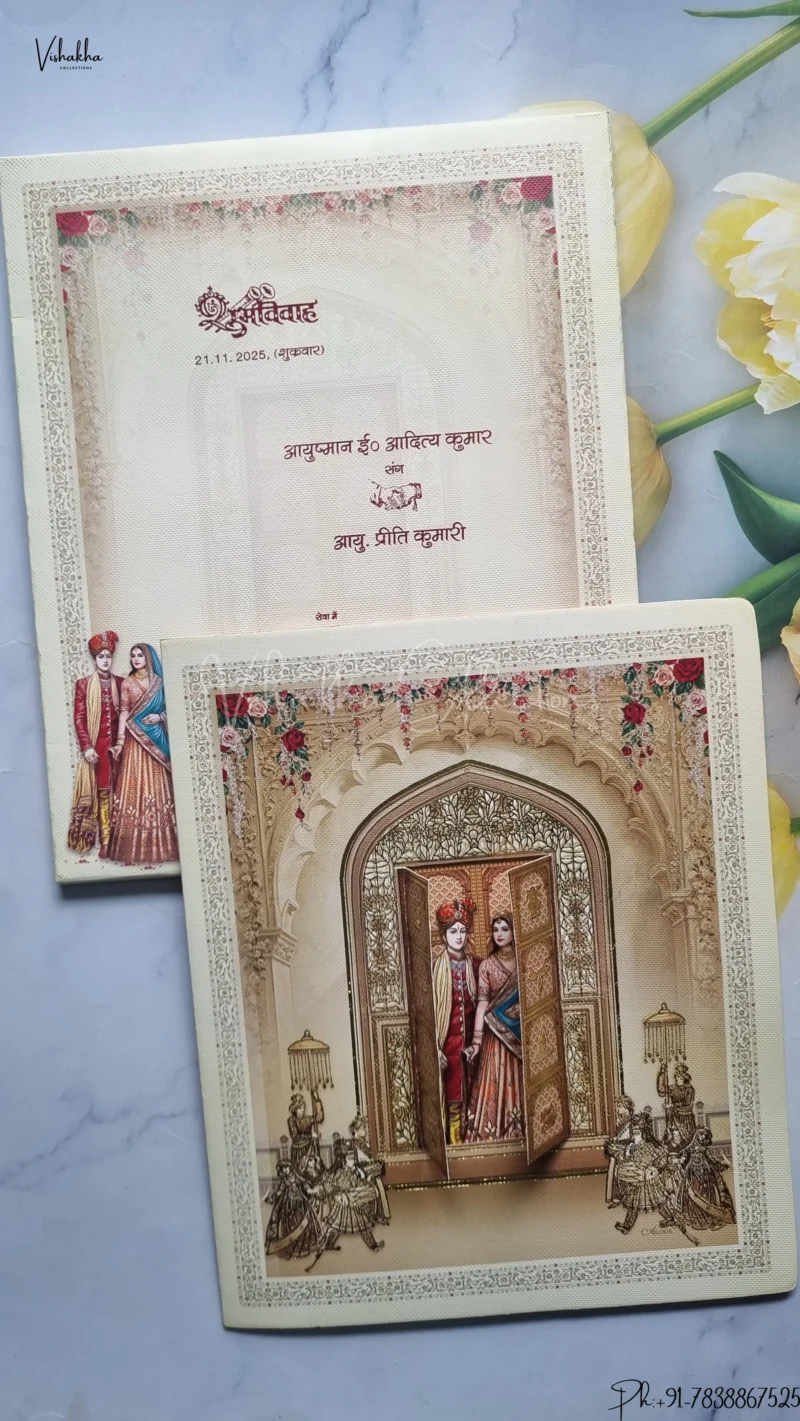 Vishakha
COLLECTIONS
शुभविवाह
21.11.2025, (शुक्रवार)
आयुष्मान ई० आदित्य कुमार
संग
आयु. प्रीति कुमारी
सेवा में
Ph:+91-7838867525